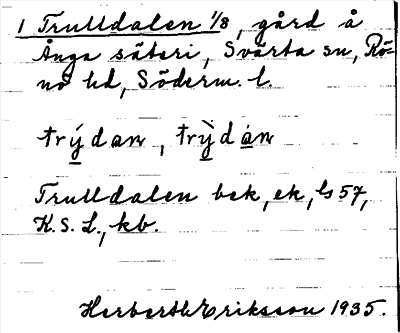 1 Trulldalen 1/8, gård å
Ånga säteri, Svärta sn, Rö-
nö hd, Söderm. l.
trýdan, trỳdán
Trulldalen bek, ek, ls 57,
K.S.L., kb.
Herbert Eriksson 1935.